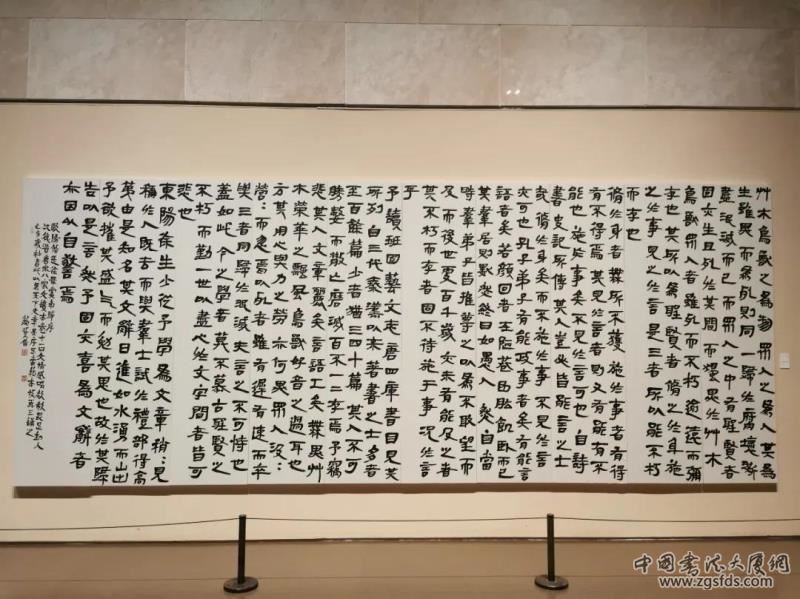 艸木鳥獸之為物眾人之為人其為
生雖異而為死則同一歸於腐壞澌
盡泯滅而已而眾人之中有聖賢者
固亦生且死於其間而獨異於艸木
鳥獸眾人者雖死而不朽逾遠而彌
存也其所以為聖賢者脩之於身施
之於事見之於言是三者所以能不朽
而存也
脩於身者無所不獲施於事者有得
有不得焉其見於言者則又有能有不
能也施於事矣不見於言可也自詩
書史記所傳其人豈必皆能言之士
哉脩於身矣而不施於事不見於言
亦可也孔子弟子有能政事者矣有能言
語者矣若顏回者在陋巷曲肱飢臥而已
其羣居則默然終日如愚人然自當
時羣弟子皆推尊之以為不敢望而
及而後世更百千歲亦未有能及之者
其不朽而存者固不待施于事況於言
乎
予讀班固藝文志唐四庫書目見其
所列自三代秦漢以來著書之士多者
至百餘篇少者猶三四十篇其人不可
勝數而散亡磨滅百不一二存焉予竊
悲其人文章麗矣言語工矣無異艸
木榮華之飄風鳥獸好音之過耳也
方其用心與力之勞亦何異眾人之汲:
營:而忽焉以死者雖有遲有速而卒
與三者同歸於泯滅夫言之不可恃也
蓋如此今之學者莫不慕古聖賢之
不朽而勤一世以盡心於文字間者皆可
悲也
東陽徐生少從予學為文章稍:見
稱於人既去而與羣士試於禮部得高
第由是知名其文辭日進如水涌而山出
予欲摧其盛氣而勉其思也故於其歸
告以是言然予固亦喜為文辭者
亦因以自警焉
歐陽脩送徐無黨南歸序
中國書法大廈網
www.zgsfds.com